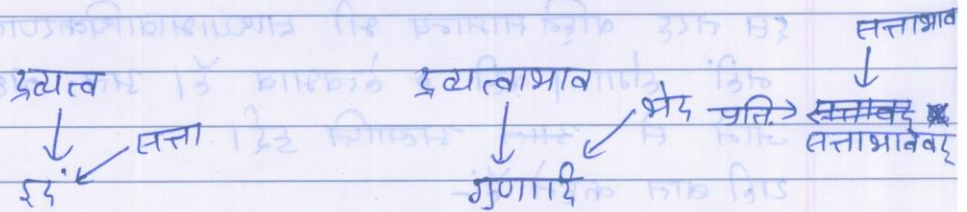 सत्ताभाव
द्रव्यत्व द्रव्यत्वाभाव भेद प्रति.→
सत्ता सत्ताभाववद्
इदं गुणादि